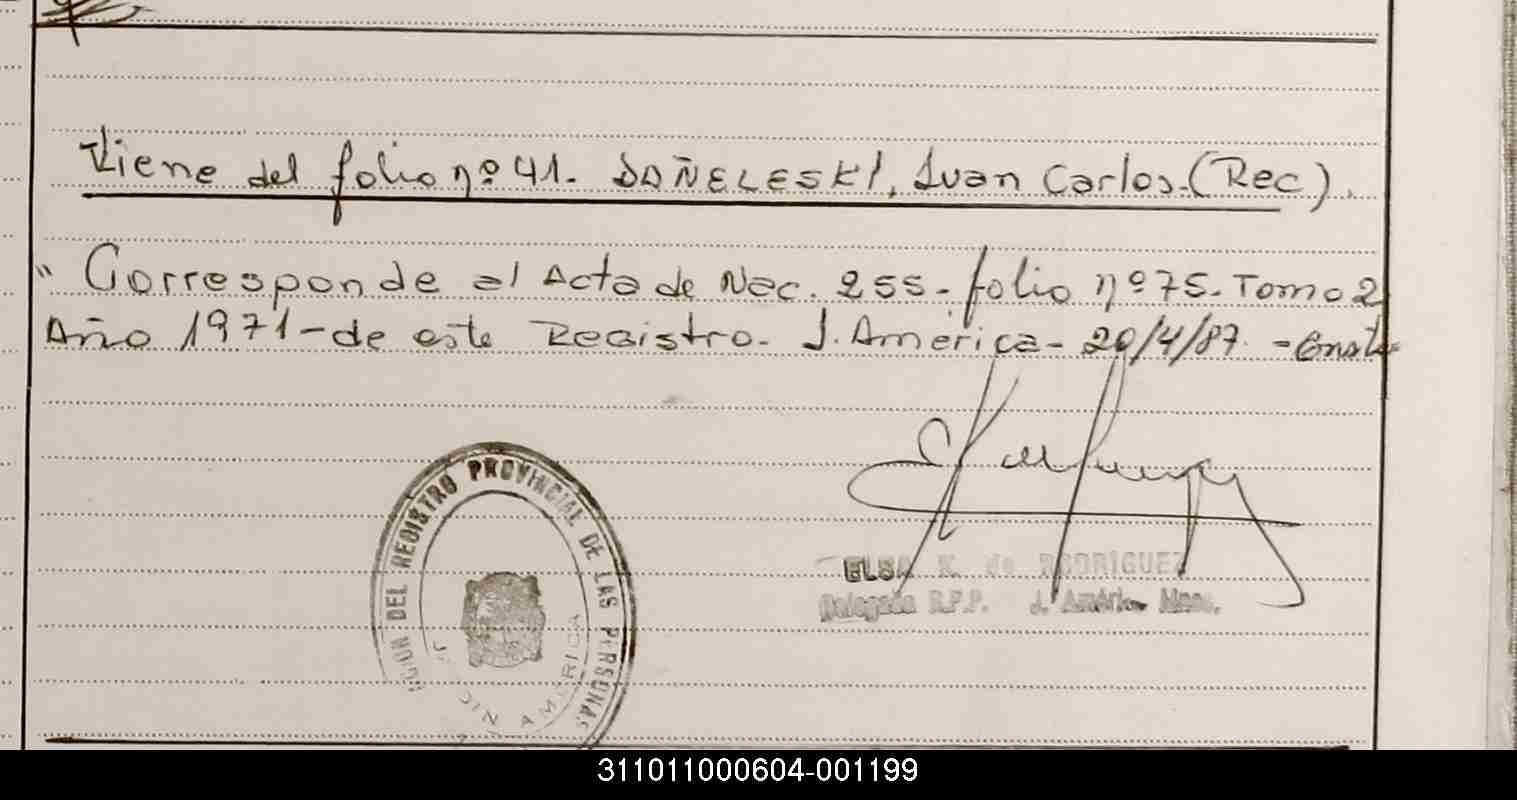 Viene del folio nº 41. DAÑELESKI, Juan Carlos.(Rec).
" Corresponde al Acta de Nac. 255-folio nº 75. Tomo 2
Año 1971-de este Registro. J. América- 20/4/87.-
ELSA K. de RODRIGUEZ
Delegada R.P.P. J. América Mnes.
DEL REGISTRO PROVINCIAL DE LAS PERSONAS
JARDIN AMERICA
311011000604-001199